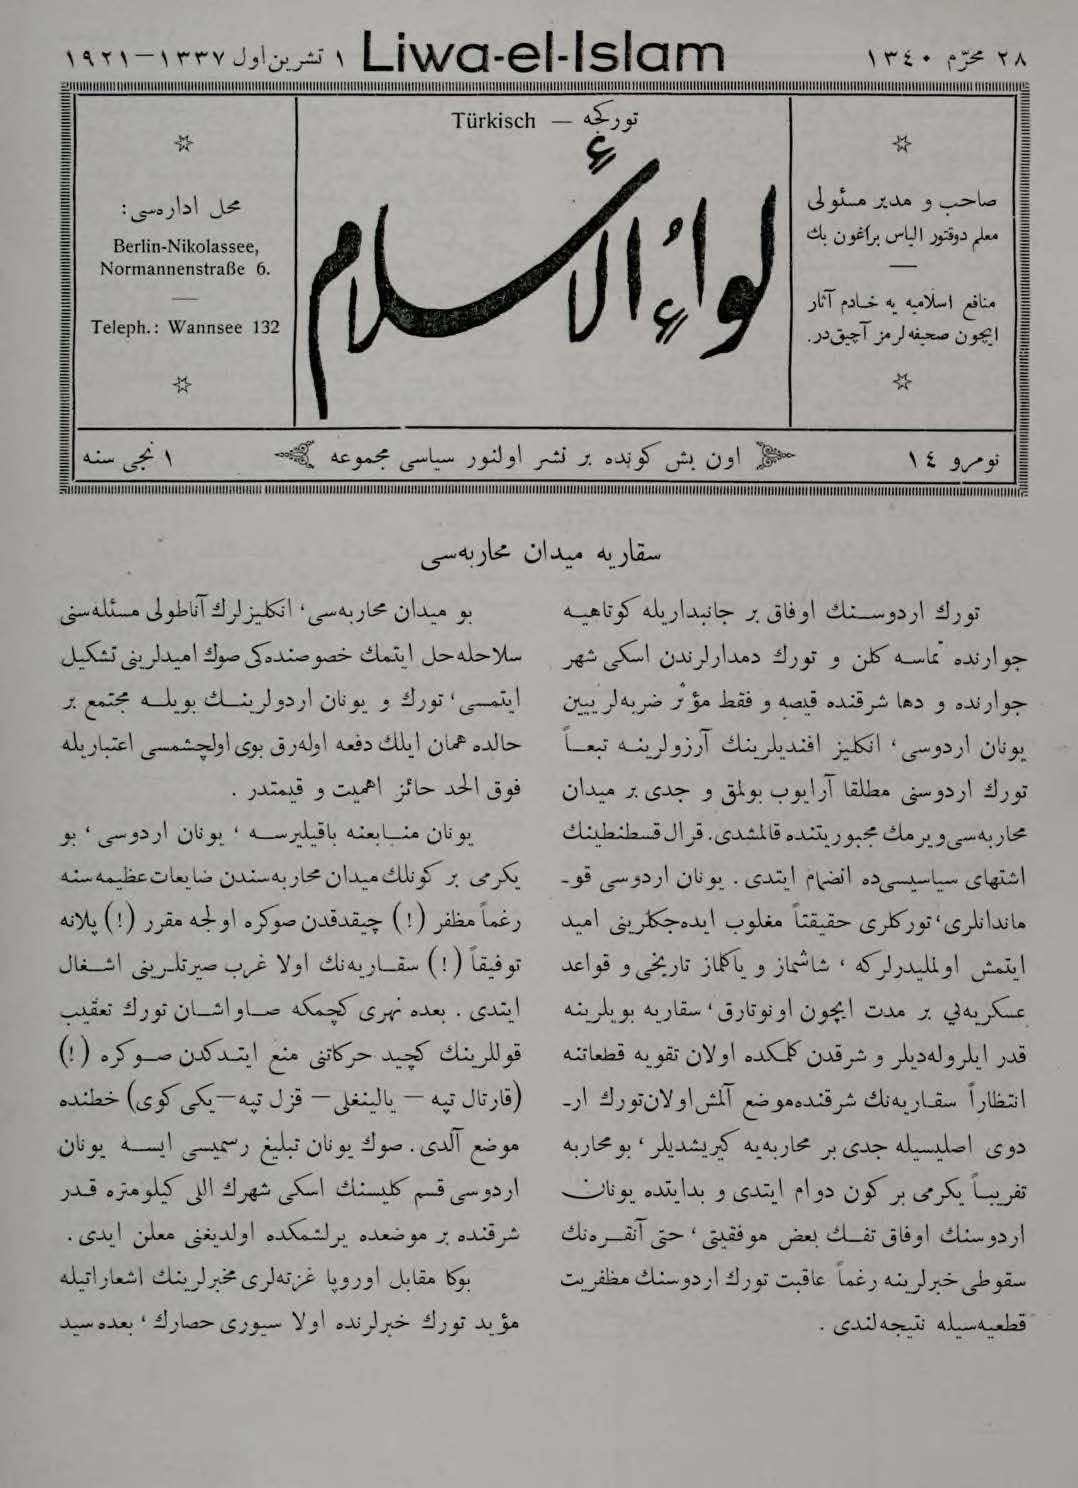 ٢٨ محرّم ١٣٤٠
Liwa-el-Islam
١ تشرین اول ١٣٣٧ — ١٩٢١
صاحب و مدیر مسئولی
معلم دوقتور الیاس براغون بك
—
منافع اسلامیه یه خادم آثار
ایچون صحیفه‌لرمز آچیق‌در.
Türkisch — تورکجه
لواء الأسلام
محل اداره‌سی:
Berlin-Nikolassee,
Normannenstraße 6.
—
Teleph.: Wannsee 132
نومرو ١٤
اون بش کونده بر نشر اولنور سیاسی مجموعه
١ نجی سنه
سقاریه میدان محاربه‌سی
تورك اردوسنك اوفاق بر جانبداریله کوتاهیه
جوارنده تماسه کلن و تورك دمدارلرندن اسکی شهر
جوارنده و دها شرقنده قیصه و فقط مؤثر ضربه‌لر ییین
یونان اردوسی، انکلیز افندیلرینك آرزولرینه تبعاً
تورك اردوسنی مطلقا آرایوب بولمق و جدی بر میدان
محاربه‌سی ویرمك مجبوریتنده قالمشدی. قرال قسطنطینك
اشتهای سیاسیسی‌ده انضمام ایتدی. یونان اردوسی قو-
ماندانلری، تورکلری حقیقتاً مغلوب ایده‌جکلرینی امید
ایتمش اولملیدرلرکه، شاشماز و یاکلماز تاریخی و قواعد
عسکریه‌یی بر مدت ایچون اونوتارق، سقاریه بویلرینه
قدر ایلروله‌دیلر و شرقدن کلمکده اولان تقویه قطعاتنه
انتظاراً سقاریه‌نك شرقنده موضع آلمش اولان تورك ار-
دوی اصلیسیله جدی بر محاربه‌یه کیریشدیلر، بو محاربه
تقریباً یکرمی بر کون دوام ایتدی و بدایتده یونان
اردوسنك اوفاق تفك بعض موفقیتی، حتی آنقره‌نك
سقوطی خبرلرینه رغماً عاقبت تورك اردوسنك مظفریت
قطعیه‌سیله نتیجه‌لندی.
بو میدان محاربه‌سی، انکلیزلرك آناطولی مسئله‌سنی
سلاحله حل ایتمك خصوصنده‌کی صوك امیدلرینی تشکیل
ایتمسی، تورك و یونان اردولرینك بویله مجتمع بر
حالده همان ایلك دفعه اوله‌رق بوی اولچشمسی اعتباریله
فوق الحد حائز اهمیت و قیمتدر.
یونان منابعنه باقیلیرسه، یونان اردوسی، بو
یکرمی بر کونلك میدان محاربه‌سندن ضایعات عظیمه‌سنه
رغماً مظفر (!) چیقدقدن صوکره اولجه مقرر (!) پلانه
توفیقاً (!) سقاریه‌نك اولا غرب صیرتلرینی اشغال
ایتدی. بعده نهری کچمکه صاواشان تورك تعقیب
قوللرینك کچید حرکاتنی منع ایتدکدن صوکره (!)
(قارتال تپه — یالینغلی — قزل تپه — یکی کوی) خطنده
موضع آلدی. صوك یونان تبلیغ رسمیسی ایسه یونان
اردوسی قسم کلیسنك اسکی شهرك اللی کیلومتره قدر
شرقنده بر موضعده یرلشمکده اولدیغنی معلن ایدی.
بوکا مقابل اوروپا غزته‌لری مخبرلرینك اشعاراتیله
مؤید تورك خبرلرنده اولا سیوری حصارك، بعده سید